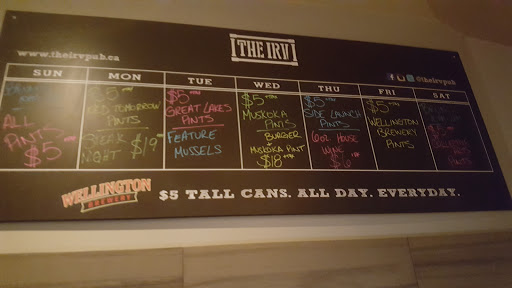 THE IRV
www.theirvpub.ca
@theirvpub
SUN MON TUE WED THU FRI SAT
ALL
PINTS
$5
$5
TOMORROW
PINTS
STEAK
NIGHT $19
$5
GREAT LAKES
PINTS
FEATURE
MUSSELS
$5
MUSKOKA
PINTS
BURGER
+
MUSKOKA PINT
$18
$5
SIDE LAUNCH
PINTS
6oz HOUSE
WINE
$6
$5
WELLINGTON
BREWERY
PINTS
PINTS
WELLINGTON
BREWERY
$5 TALL CANS. ALL DAY. EVERYDAY.